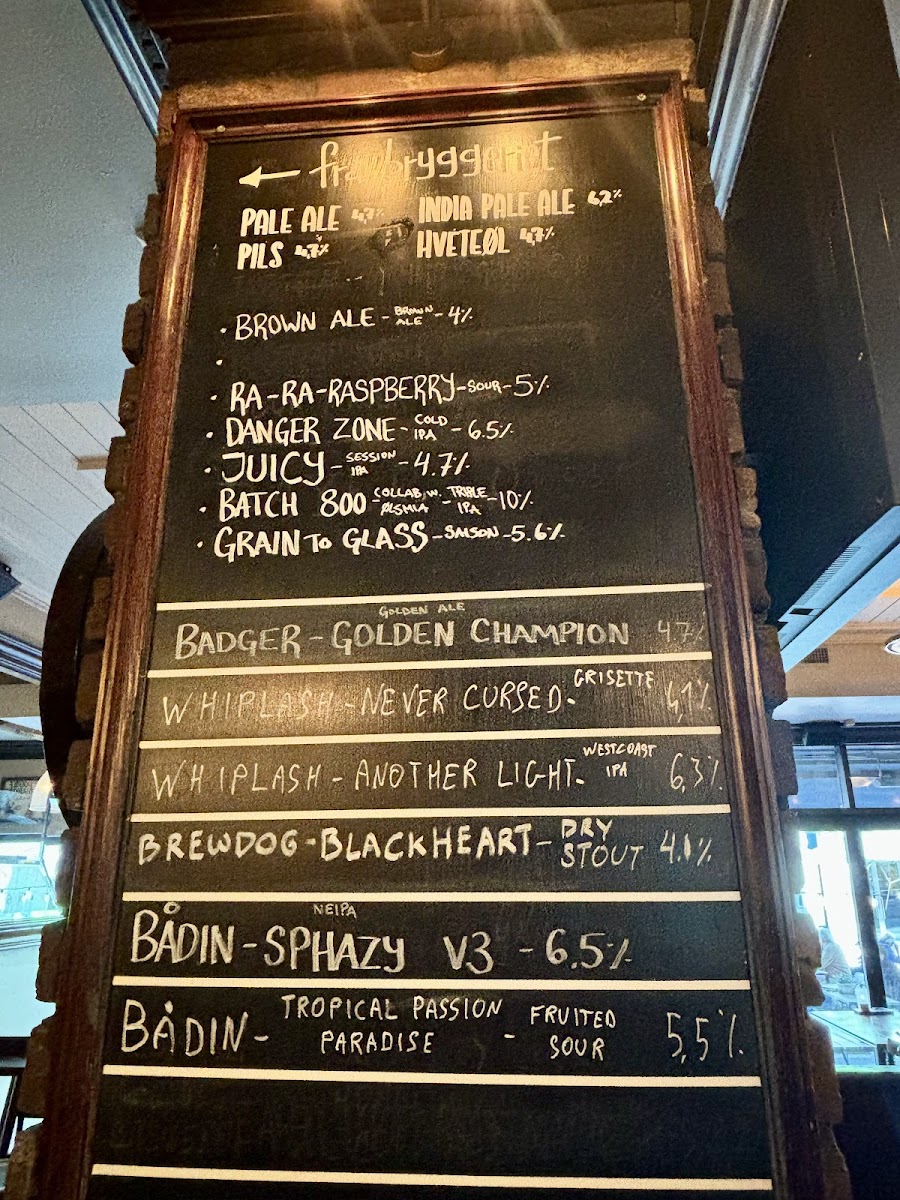 ← frambryggeriet
PALE ALE 4,7% INDIA PALE ALE 6,2%
PILS 4,7% HVETEØL 4,7%
· BROWN ALE - BROWN ALE - 4%
·
· RA-RA-RASPBERRY - SOUR - 5%
· DANGER ZONE - COLD IPA - 6.5%
· JUICY - SESSION IPA - 4.7%
· BATCH 800 - COLLAB. W. - TRIPLE IPA - 10%
· GRAIN TO GLASS - SAISON - 5.6%
GOLDEN ALE
BADGER - GOLDEN CHAMPION 4.7%
WHIPLASH - NEVER CURSED - GRISETTE 4,1%
WHIPLASH - ANOTHER LIGHT - WESTCOAST IPA 6,3%
BREWDOG - BLACKHEART - DRY STOUT 4.1%
NEIPA
BÅDIN - SPHAZY V3 - 6.5%
BÅDIN - TROPICAL PASSION PARADISE - FRUITED SOUR 5,5%